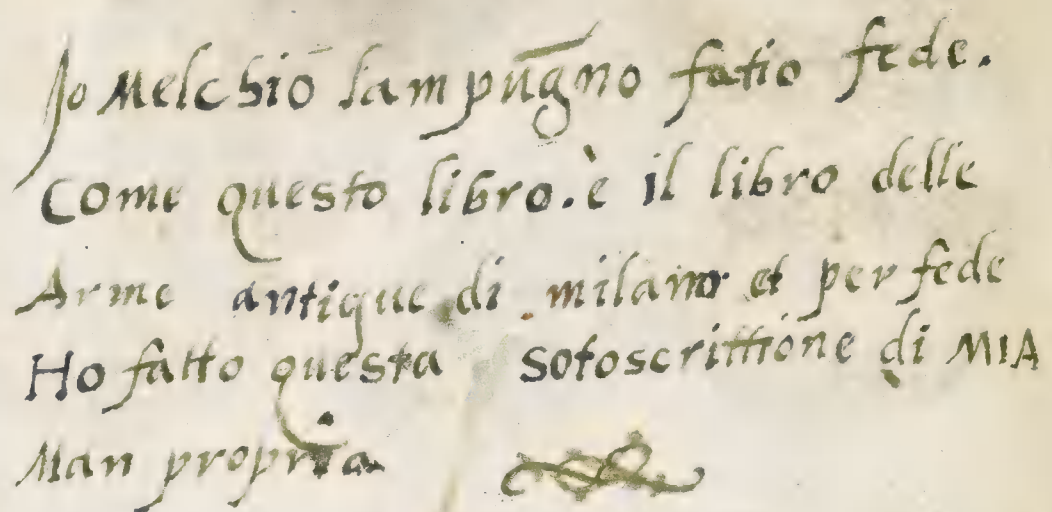 Jo Melchiō lampūgno fatio fede.
Come questo libro. è il libro delle
Arme antique di milano et per fede
Ho fatto questa sotoscrittione di MIA
Man propria